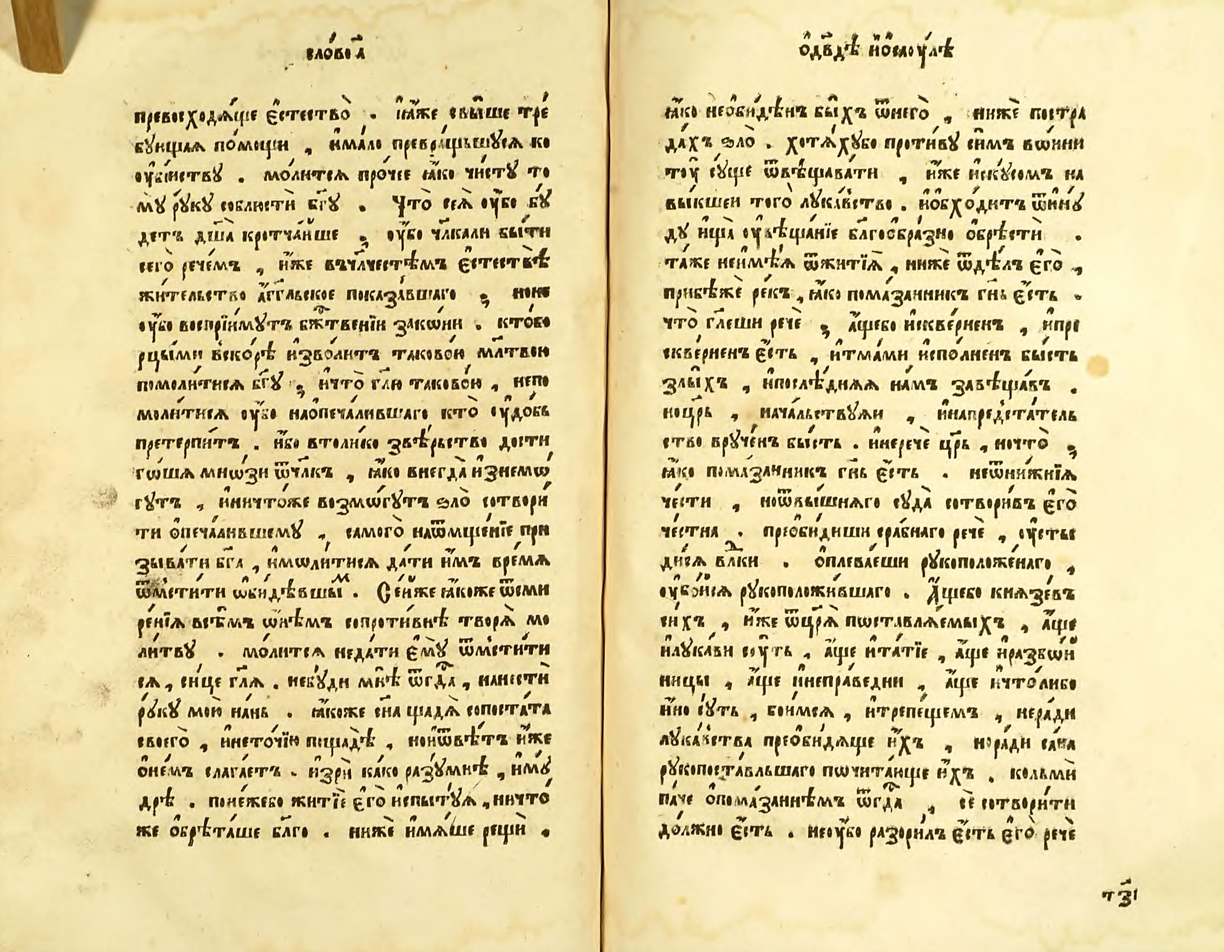 сло́во а҃
превосходѧ́ще є҆стество̀ . ꙗ҆́же свы́ше тре́
бꙋющаѧ по́мощи , и҆ма́ло превра́щьшꙋсѧ ко
ᲂу҆бі́йствꙋ . мо́литсѧ про́чее ꙗ҆́ко чи́стꙋ то
мꙋ̀ рꙋ́кꙋ соблюстѝ бг҃ꙋ . Что̀ сеѧ̀ ᲂу҆́бо бꙋ́
детъ дш҃а̀ кротча́йше ; ᲂу҆́бо чл҃ка ли бы́ти
сего̀ рече́мъ , и҆́же въчл҃честѣ́мъ є҆стествѣ̀
жи́тельство а҆́гг҃льское показа́вшаго ; но не
ᲂу҆́бо воспрїи́мꙋтъ бж҃твенїи зако́ни . кто́бо
рцы́ми вско́рѣ и҆зво́литъ таково́ю мл҃твою
помоли́тисѧ бг҃ꙋ ; и҆что̀ гл҃ю таково́ю , непо
моли́тисѧ ᲂу҆́бо наѡ҆печа́лившаго кто̀ ᲂу҆до́бь
претерпи́тъ . и҆́бо втоли́ко ѕвѣ́рьство дости
го́ша мно́зи ѿчл҃къ , ꙗ҆́ко внегда̀ и҆знемо́
гꙋтъ , и҆ничто́же возмо́гꙋтъ ѕло̀ сотвори́
ти ѡ҆печа́лившемꙋ , самого̀ наѿмще́нїе при
зыва́ти бг҃а , и҆моли́тисѧ да́ти и҆̀мъ вре́мѧ
ѿмсти́ти ѡ҆би́дѣвшы́м . Се́й же ꙗ҆́коже ѿсми
ре́нїѧ всѣ́мъ ѡ҆нѣ́мъ сопроти́внѣ творѧ̀ мо
ли́твꙋ . мо́литсѧ неда́ти є҆мꙋ̀ ѿмсти́ти
сѧ , си́це гл҃ѧ . небꙋ́ди мнѣ̀ ѿгд҃а , нанестѝ
рꙋ́кꙋ мою̀ на́нь . ꙗ҆́коже сн҃а щадѧ̀ сопоста́та
своего̀ , и҆нето́чїю пощадѣ̀ , но и҆ѿвѣ́тъ и҆́же
ѡ҆не́мъ слага́етъ . и҆зрѝ ка́ко разꙋ́мнѣ , и҆мꙋ́
дрѣ . поне́жебо житїѐ є҆гѡ̀ и҆спы́тꙋѧ , ничто́
же ѡ҆брѣ́таше бл҃го . нижѐ и҆мѧ́ше рещѝ .
ѡ҆дв҃дѣ и҆ѡ҆саꙋ́лѣ
ꙗ҆́ко неѡ҆би́дѣнъ бы́хъ ѿнего̀ , нижѐ постра
да́хъ ѕло̀ . хотѧ́хꙋбо проти́вꙋ си́мъ во́ини
тоу̀ сꙋ́ще ѿвѣщава́ти , и҆̀же и҆скꙋ́сомъ на
вы́кшеи того̀ лꙋка́вство . и҆ѡ҆бхо́дитъ ѿню́
дꙋ и҆ща̀ ᲂу҆вѣща́нїе бл҃гоѡбра́зно ѡ҆брѣстѝ .
та́же неи҆мѣ́ѧ ѿжитїѧ̀ , нижѐ ѿдѣ́лъ є҆гѡ̀ ,
прибѣ́же ре́къ , ꙗ҆́ко пома́занникъ гн҃ь є҆́сть .
что̀ гл҃еши речѐ ; а҆́щебо и҆скве́рненъ , и҆пре
скве́рненъ є҆́сть , и҆тма́ми и҆спо́лненъ бы́сть
ѕлы́хъ , и҆послѣ́днѧѧ на́мъ завѣща́въ .
но цр҃ь , нача́льствꙋѧи , и҆напредста́тель
ство врꙋче́нъ бы́сть . и҆неречѐ цр҃ь , но что̀ ;
ꙗ҆́ко пома́занникъ гн҃ь є҆́сть . неѿни́жнїѧ
че́сти , но ѿвы́шнѧго сꙋда̀ сотвори́въ є҆го̀
че́стна . преѡ҆би́диши сра́бнаго речѐ , ᲂу҆сты
ди́сѧ влⷣки . ѡ҆плева́еши рꙋкополо́женаго ,
ᲂу҆бо́йсѧ рꙋкоположи́вшаго . А҆́щебо кнѧзе́въ
си́хъ , и҆̀же ѿцр҃ѧ поставлѧ́емыхъ , а҆́ще
и҆лꙋка́ви сꙋ́ть , а҆́ще и҆та́тїе , а҆́ще и҆разбо́й
ницы , а҆́ще и҆непра́ведни , а҆́ще и҆что́либо
и҆́но сꙋ́ть , бои́мсѧ , и҆трепе́щемъ , неради
лꙋка́вства преѡ҆би́дѧще и҆́хъ , норади са́на
рꙋкопоста́вльшаго почита́юще и҆́хъ . кольмѝ
па́че ѡ҆пома́заннѣмъ ѿгд҃а , сѐ сотвори́ти
до́лжно є҆́сть . неᲂу҆́бо разори́лъ є҆́сть є҆гѡ̀ речѐ
тз҃і